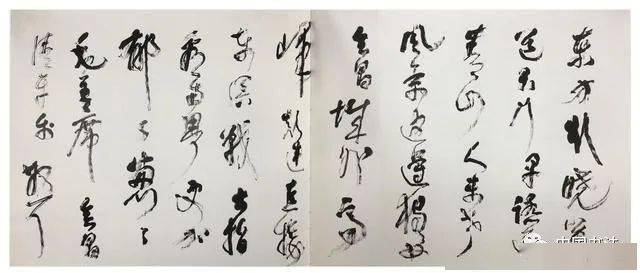 东方欲晓莫
道君行早踏遍
青山人未老
风景这边独好
会昌城外高
峰颠连直接
东溟战士指
看南粤更加
郁々葱々
毛主席 会昌
清平乐
中国书法